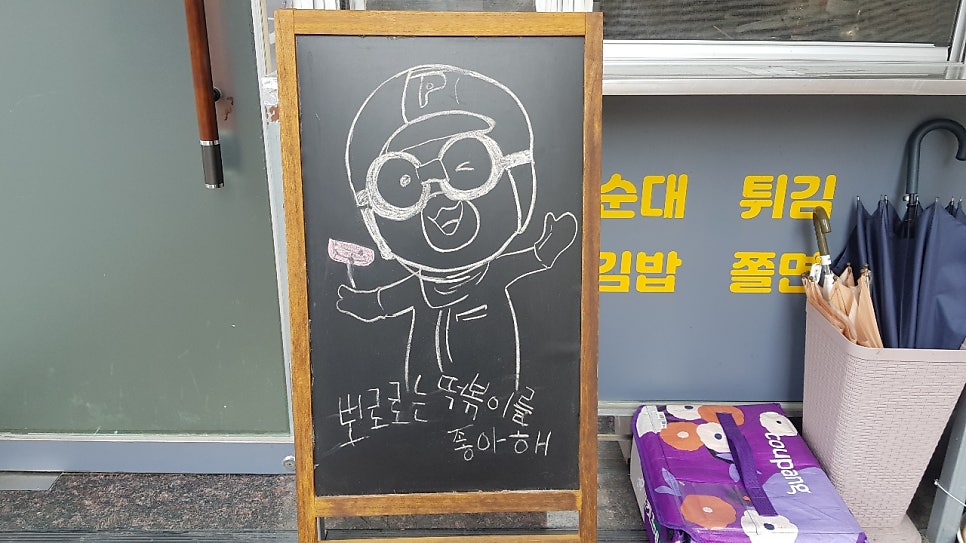 P
뽀로로는 떡볶이를
좋아해
순대 튀김
김밥 쫄면
coupang